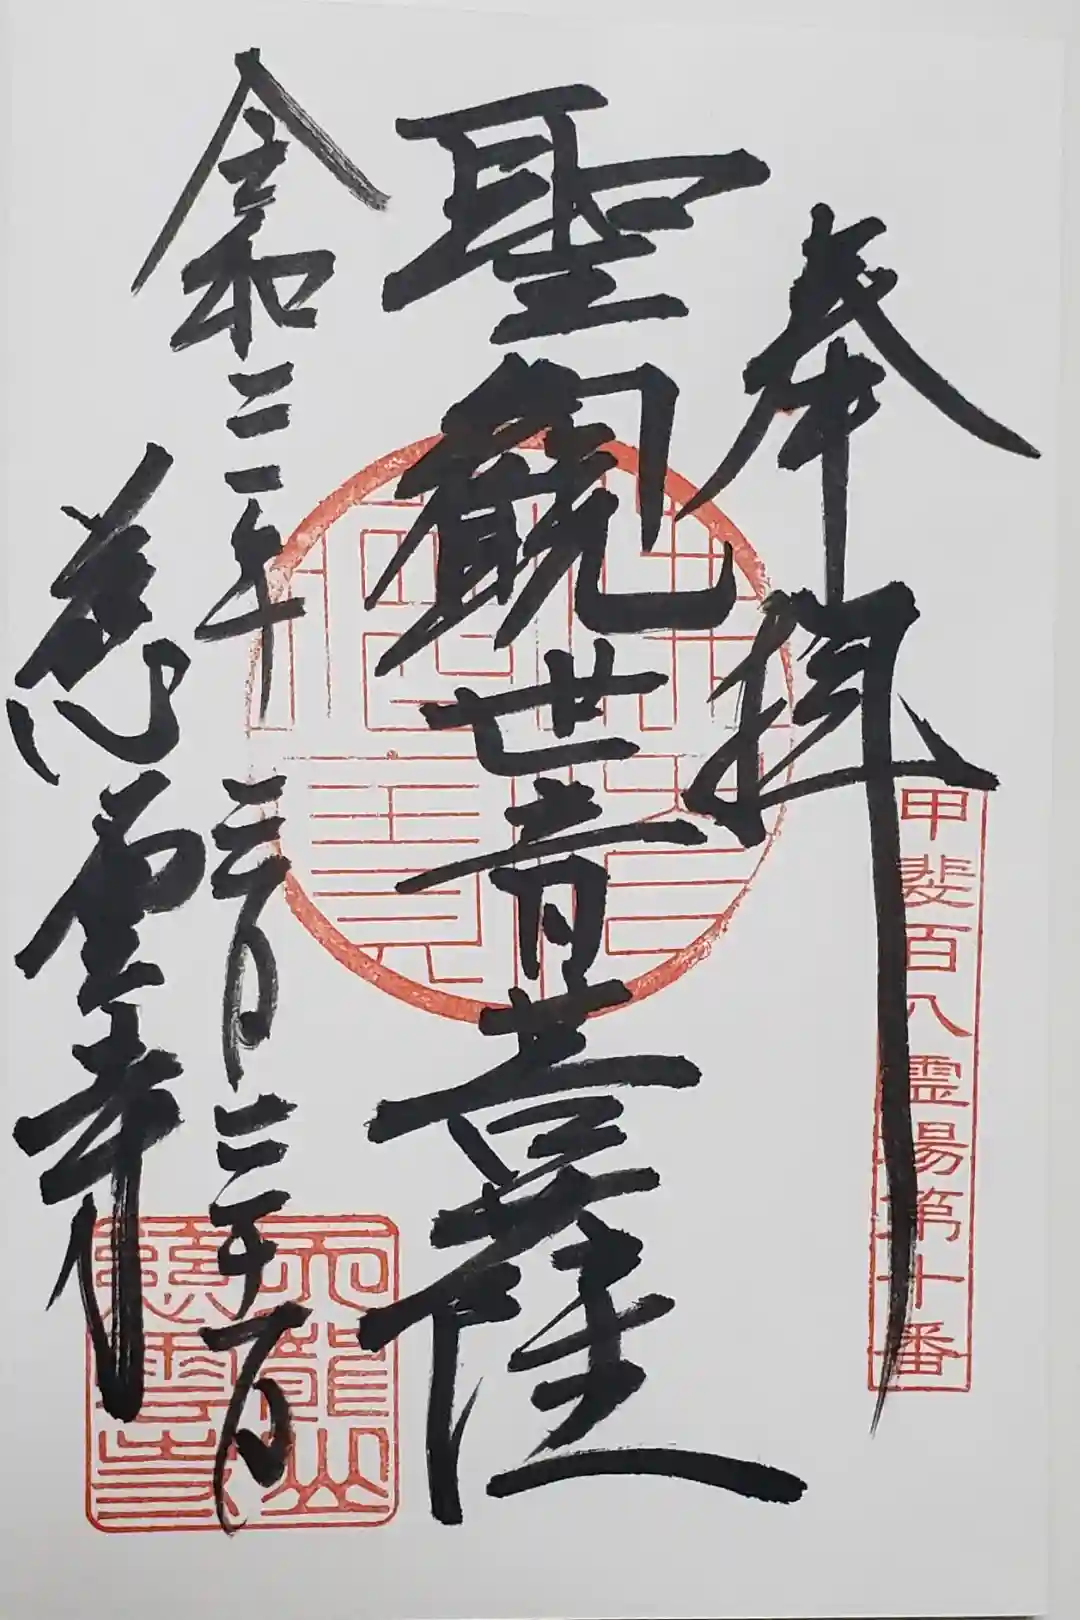 奉拝
甲斐百八霊場第十番
聖観世音菩薩
令和二二年三月二十一日
慈雲寺
天龍山
慈雲寺